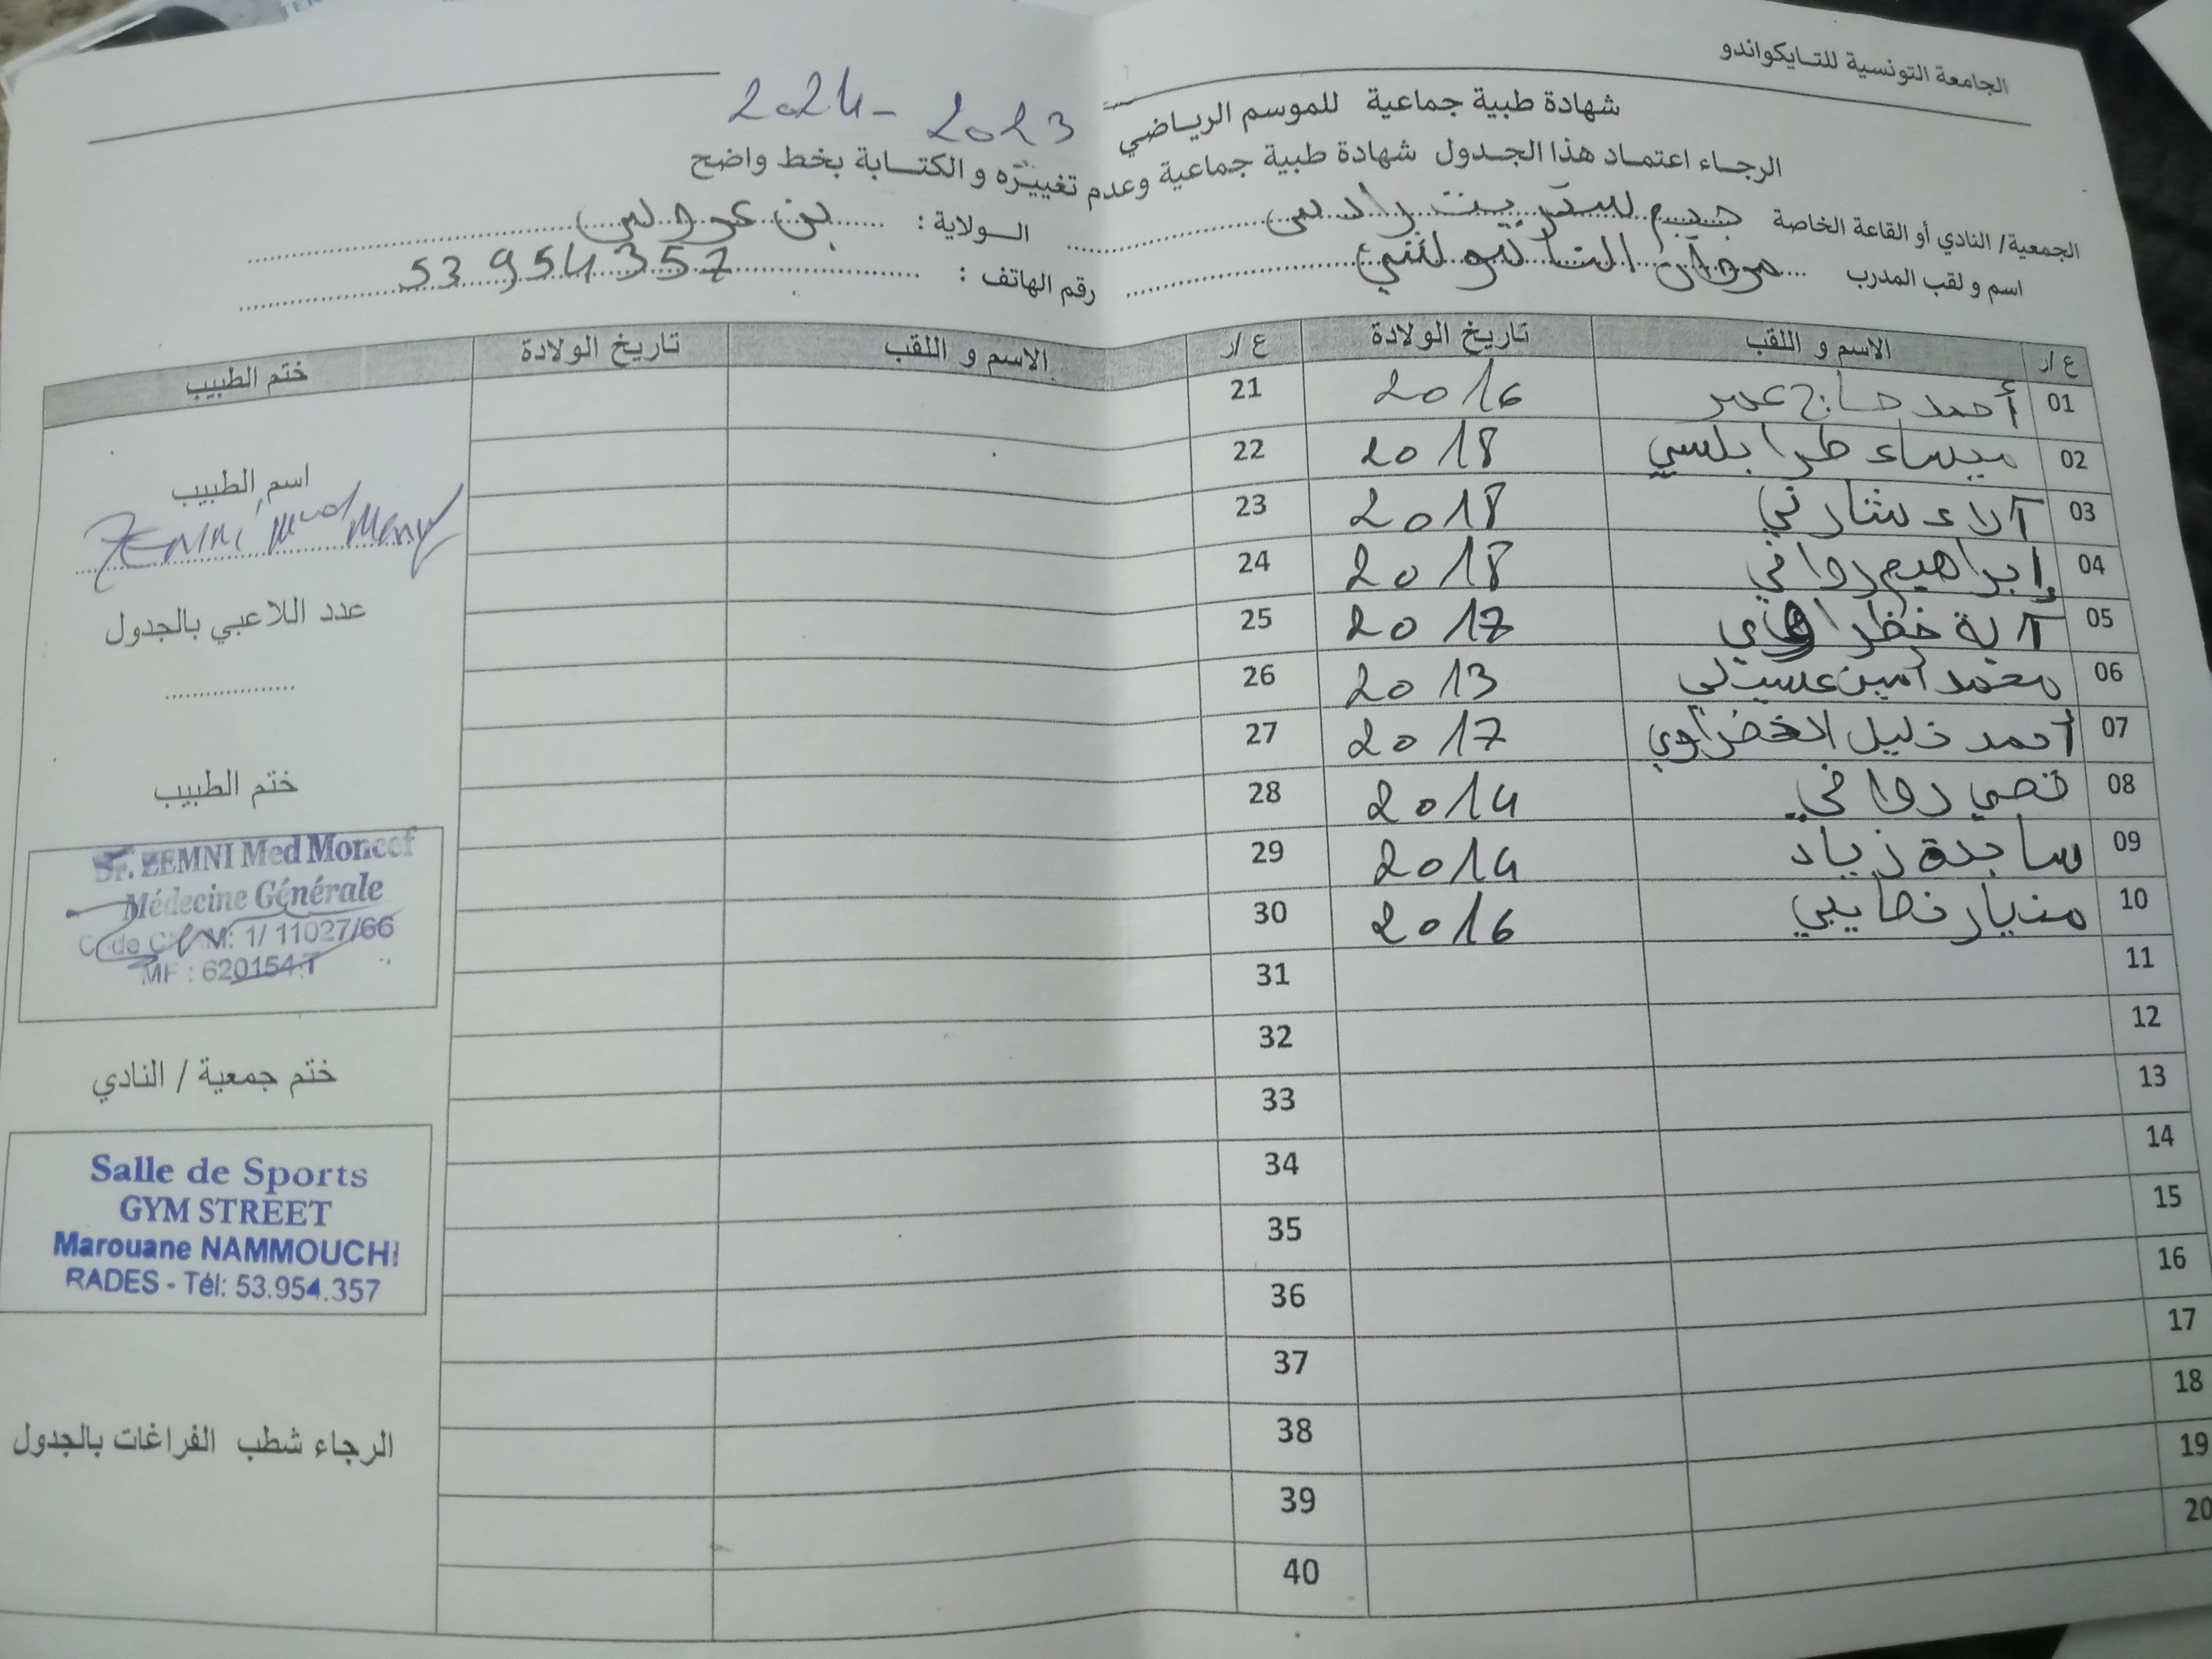 الجامعة التونسية للتايكواندو
شهادة طبية جماعية للموسم الرياضي 2023 - 2024
الرجاء اعتماد هذا الجدول شهادة طبية جماعية وعدم تغييره و الكتابة بخط واضح
الجمعية/ النادي أو القاعة الخاصة جيم ستريت رادس الولاية : بن عروس
اسم و لقب المدرب رقم الهاتف : 53 954 357
ع /ر الاسم و اللقب تاريخ الولادة ع /ر الاسم و اللقب تاريخ الولادة ختم الطبيب
01 أحمد حاج عمر 2016 21
02 ميساء طرابلسي 2018 22
03 آلاء شارني 2018 23
04 إبراهيم روافي 2018 24
05 آية 2017 25
06 محمد أمين 2013 26
07 أحمد خليل الخضراوي 2017 27
08 قصي روافي 2014 28
09 ساجدة زياد 2014 29
10 2016 30
11 31
12 32
13 33
14 34
15 35
16 36
17 37
18 38
19 39
20 40
اسم الطبيب
ZEMNI Med
عدد اللاعبي بالجدول
ختم الطبيب
Dr. ZEMNI Med Moncef
Médecine Générale
Code CNAM: 1/ 11027/66
MF : 620154.T
ختم جمعية / النادي
Salle de Sports
GYM STREET
Marouane NAMMOUCHI
RADES - Tél: 53.954.357
الرجاء شطب الفراغات بالجدول